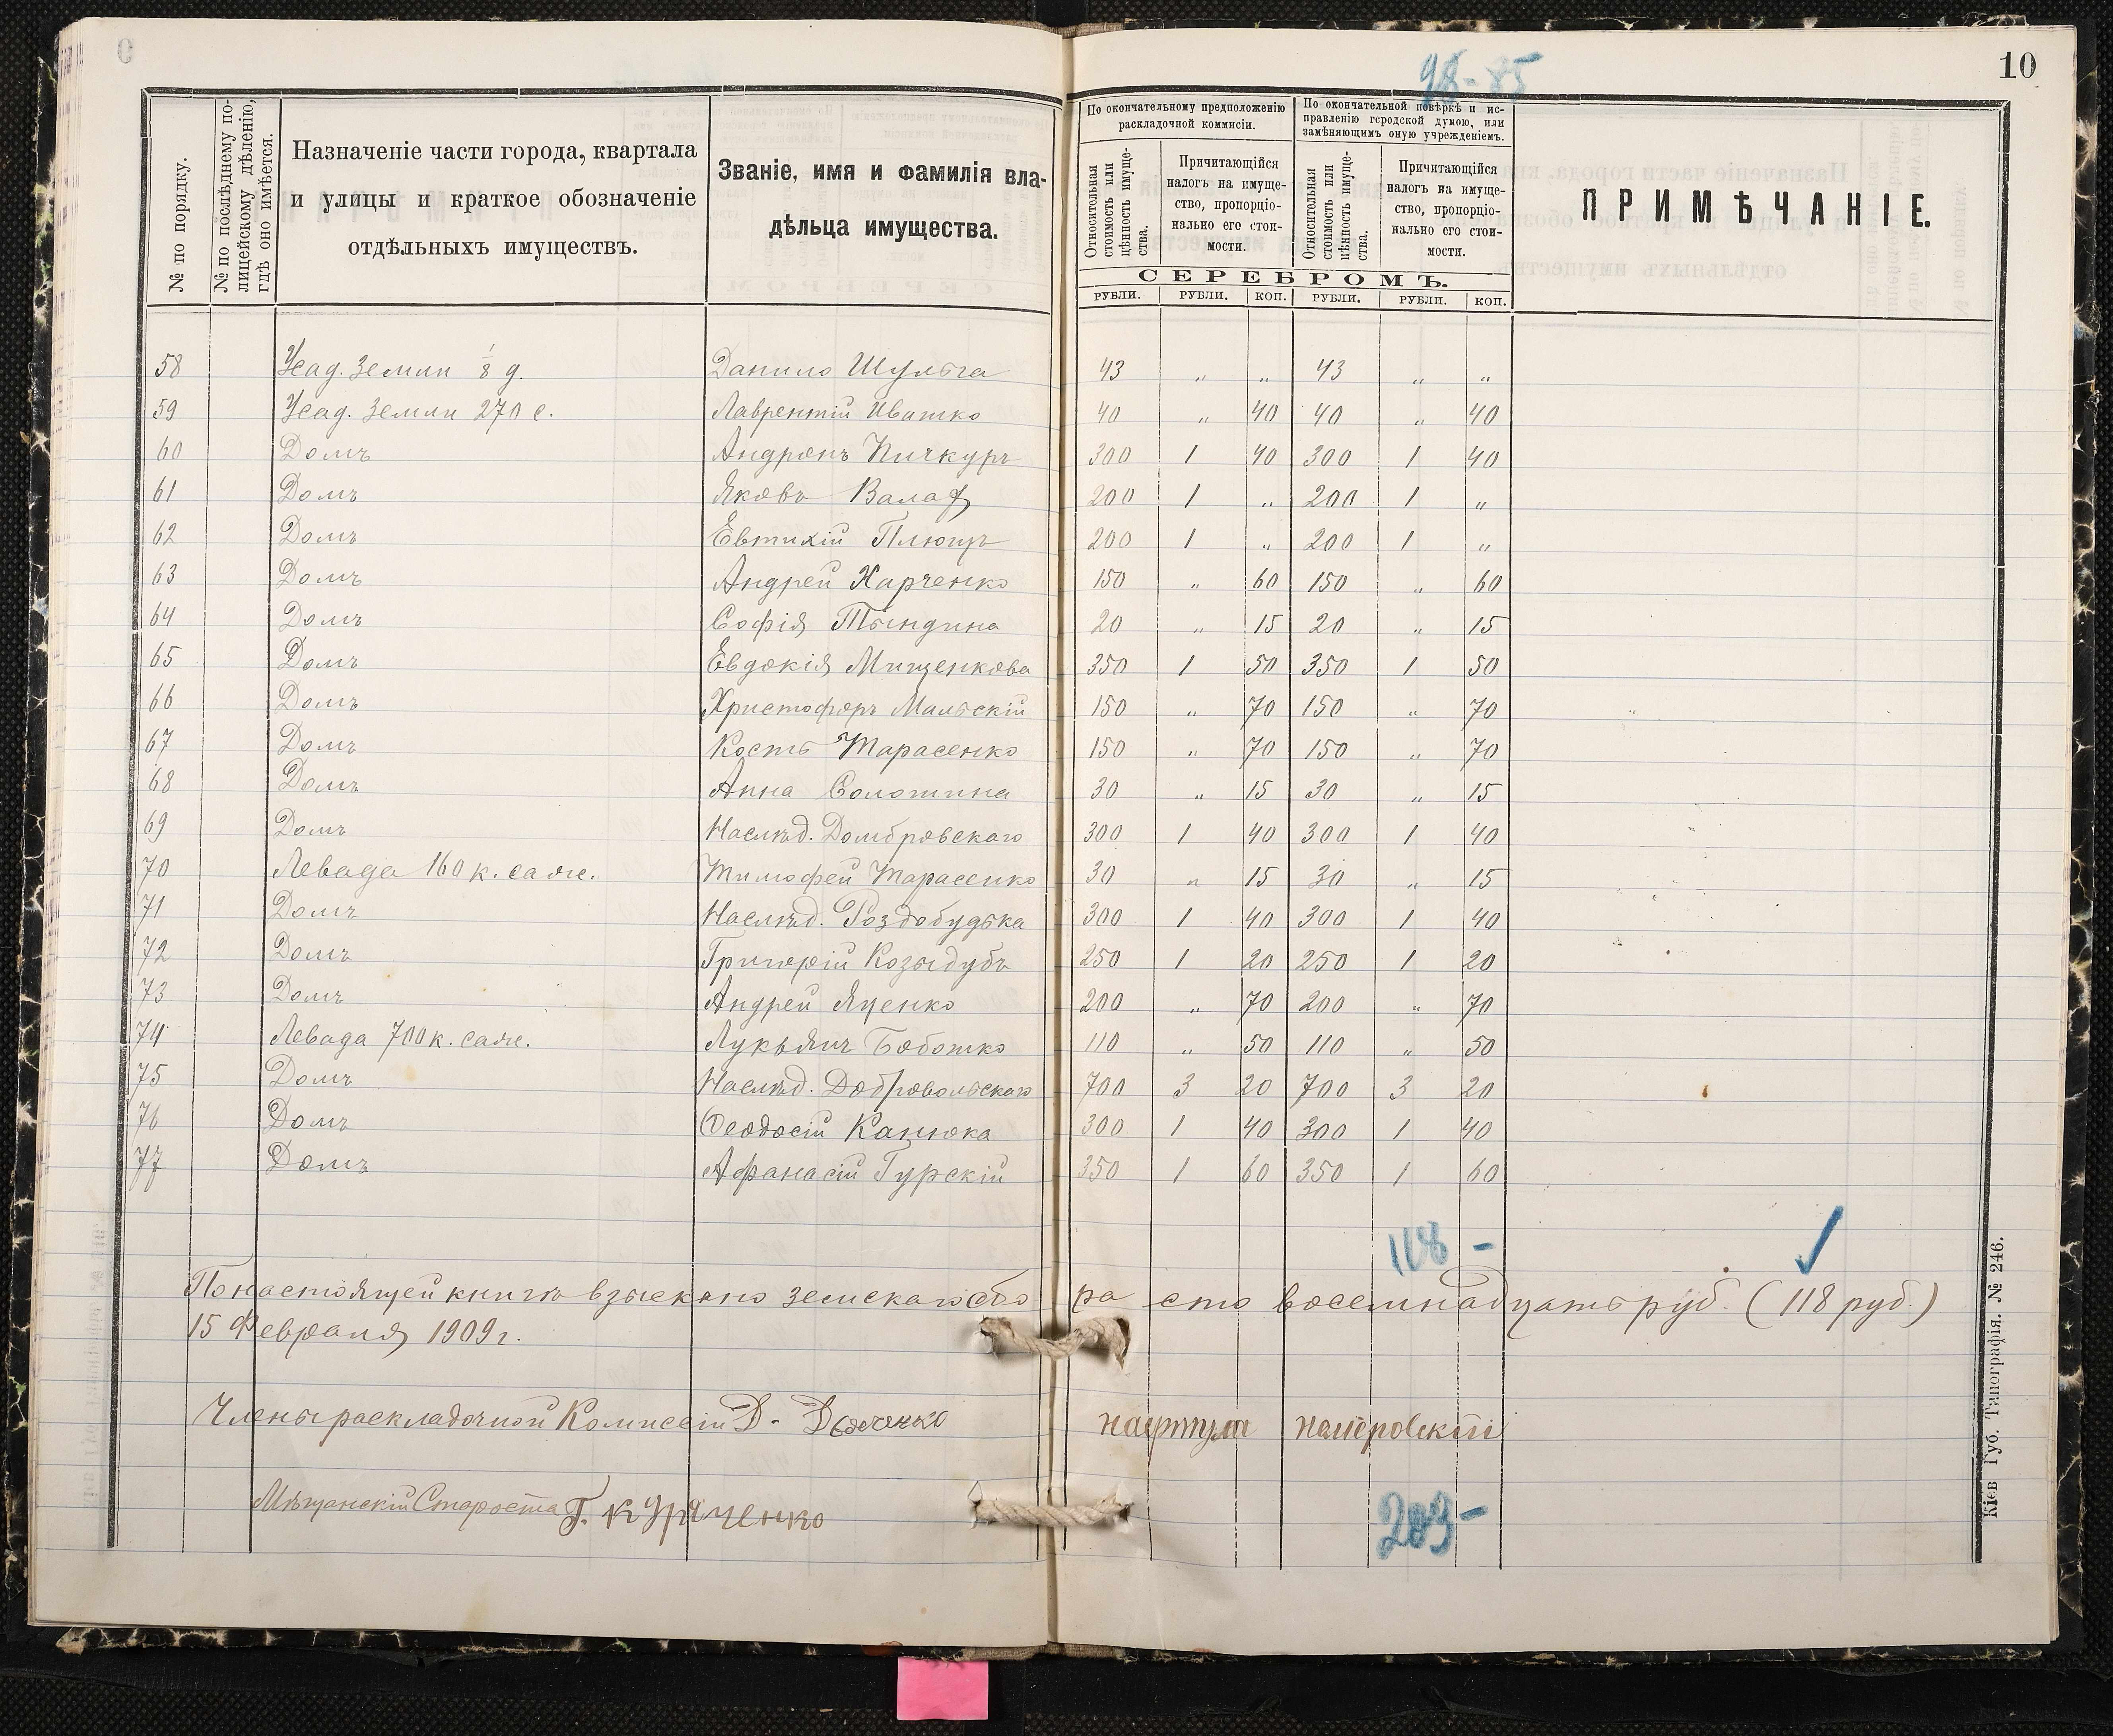 98-85
10
№ по порядку.
№ по послѣднему по-
лицейскому дѣленію,
гдѣ оно имѣется.
Назначеніе части города, квартала
и улицы и краткое обозначеніе
отдѣльныхъ имуществъ.
Званіе, имя и фамилія вла-
дѣльца имущества.
По окончательному предположенію
раскладочной коммисіи.
По окончательной повѣркѣ и ис-
правленію городской думою, или
замѣняющимъ оную учрежденіемъ.
Относительная
стоимость или
цѣнность имуще-
ства.
Причитающійся
налогъ на имуще-
ство, пропорціо-
нально его стои-
мости.
Относительная
стоимость или
цѣнность имуще-
ства.
Причитающійся
налогъ на имуще-
ство, пропорціо-
нально его стои-
мости.
ПРИМѢЧАНІЕ.
СЕРЕБРОМЪ.
РУБЛИ. РУБЛИ. КОП. РУБЛИ. РУБЛИ. КОП.
58 Усад. земли 1/8 д. Данило Шульга 43 „ „ 43 „ „
59 Усад. земли 270 с. Лаврентій Ивашко 40 „ 40 40 „ 40
60 Домъ Андронъ Пичкуръ 300 1 40 300 1 40
61 Домъ Яковъ 200 1 „ 200 1 „
62 Домъ Евтихій Плющъ 200 1 „ 200 1 „
63 Домъ Андрей Харченко 150 „ 60 150 „ 60
64 Домъ Софія Тындина 20 „ 15 20 „ 15
65 Домъ Евдокія Мищенкова 350 1 50 350 1 50
66 Домъ Христофоръ Мальскій 150 „ 70 150 „ 70
67 Домъ Кость Тарасенко 150 „ 70 150 „ 70
68 Домъ Анна Солошина 30 „ 15 30 „ 15
69 Домъ Наслѣд. Домбровскаго 300 1 40 300 1 40
70 Левада 160 к. саж. Тимофей Тарасенко 30 „ 15 30 „ 15
71 Домъ Наслѣд. Роздобудька 300 1 40 300 1 40
72 Домъ Григорій Козыдубъ 250 1 20 250 1 20
73 Домъ Андрей Яценко 200 „ 70 200 „ 70
74 Левада 700 к. саж. Лукьянъ Бобошко 110 „ 50 110 „ 50
75 Домъ Наслѣд. Добровольскаго 700 3 20 700 3 20
76 Домъ Ѳеодосій Канюка 300 1 40 300 1 40
77 Домъ Афанасій Гурскій 350 1 60 350 1 60
118 -
По настоящей книгѣ взыскано земскаго сбора сто восемнадцать руб. (118 руб.)
15 Февраля 1909 г.
Члены раскладочной Комиссіи Д. Дяченко
Мѣщанскій Староста Г. Куряченко
203-
Кіев Губ. Типографія. № 246.